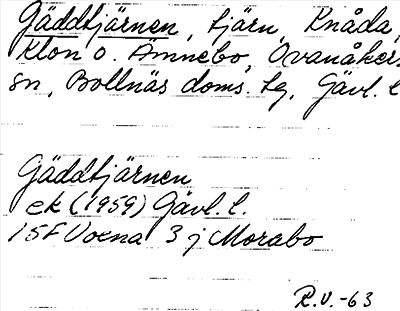 Gäddtjärnen, tjärn, Knåda,
Klon o. Annebo, Ovanåkers
sn, Bollnäs doms. tg, Gävl. l
Gäddtjärnen
ek (1959) Gävl. l.
15F Voxna 3 j Morabo
R.V.-63